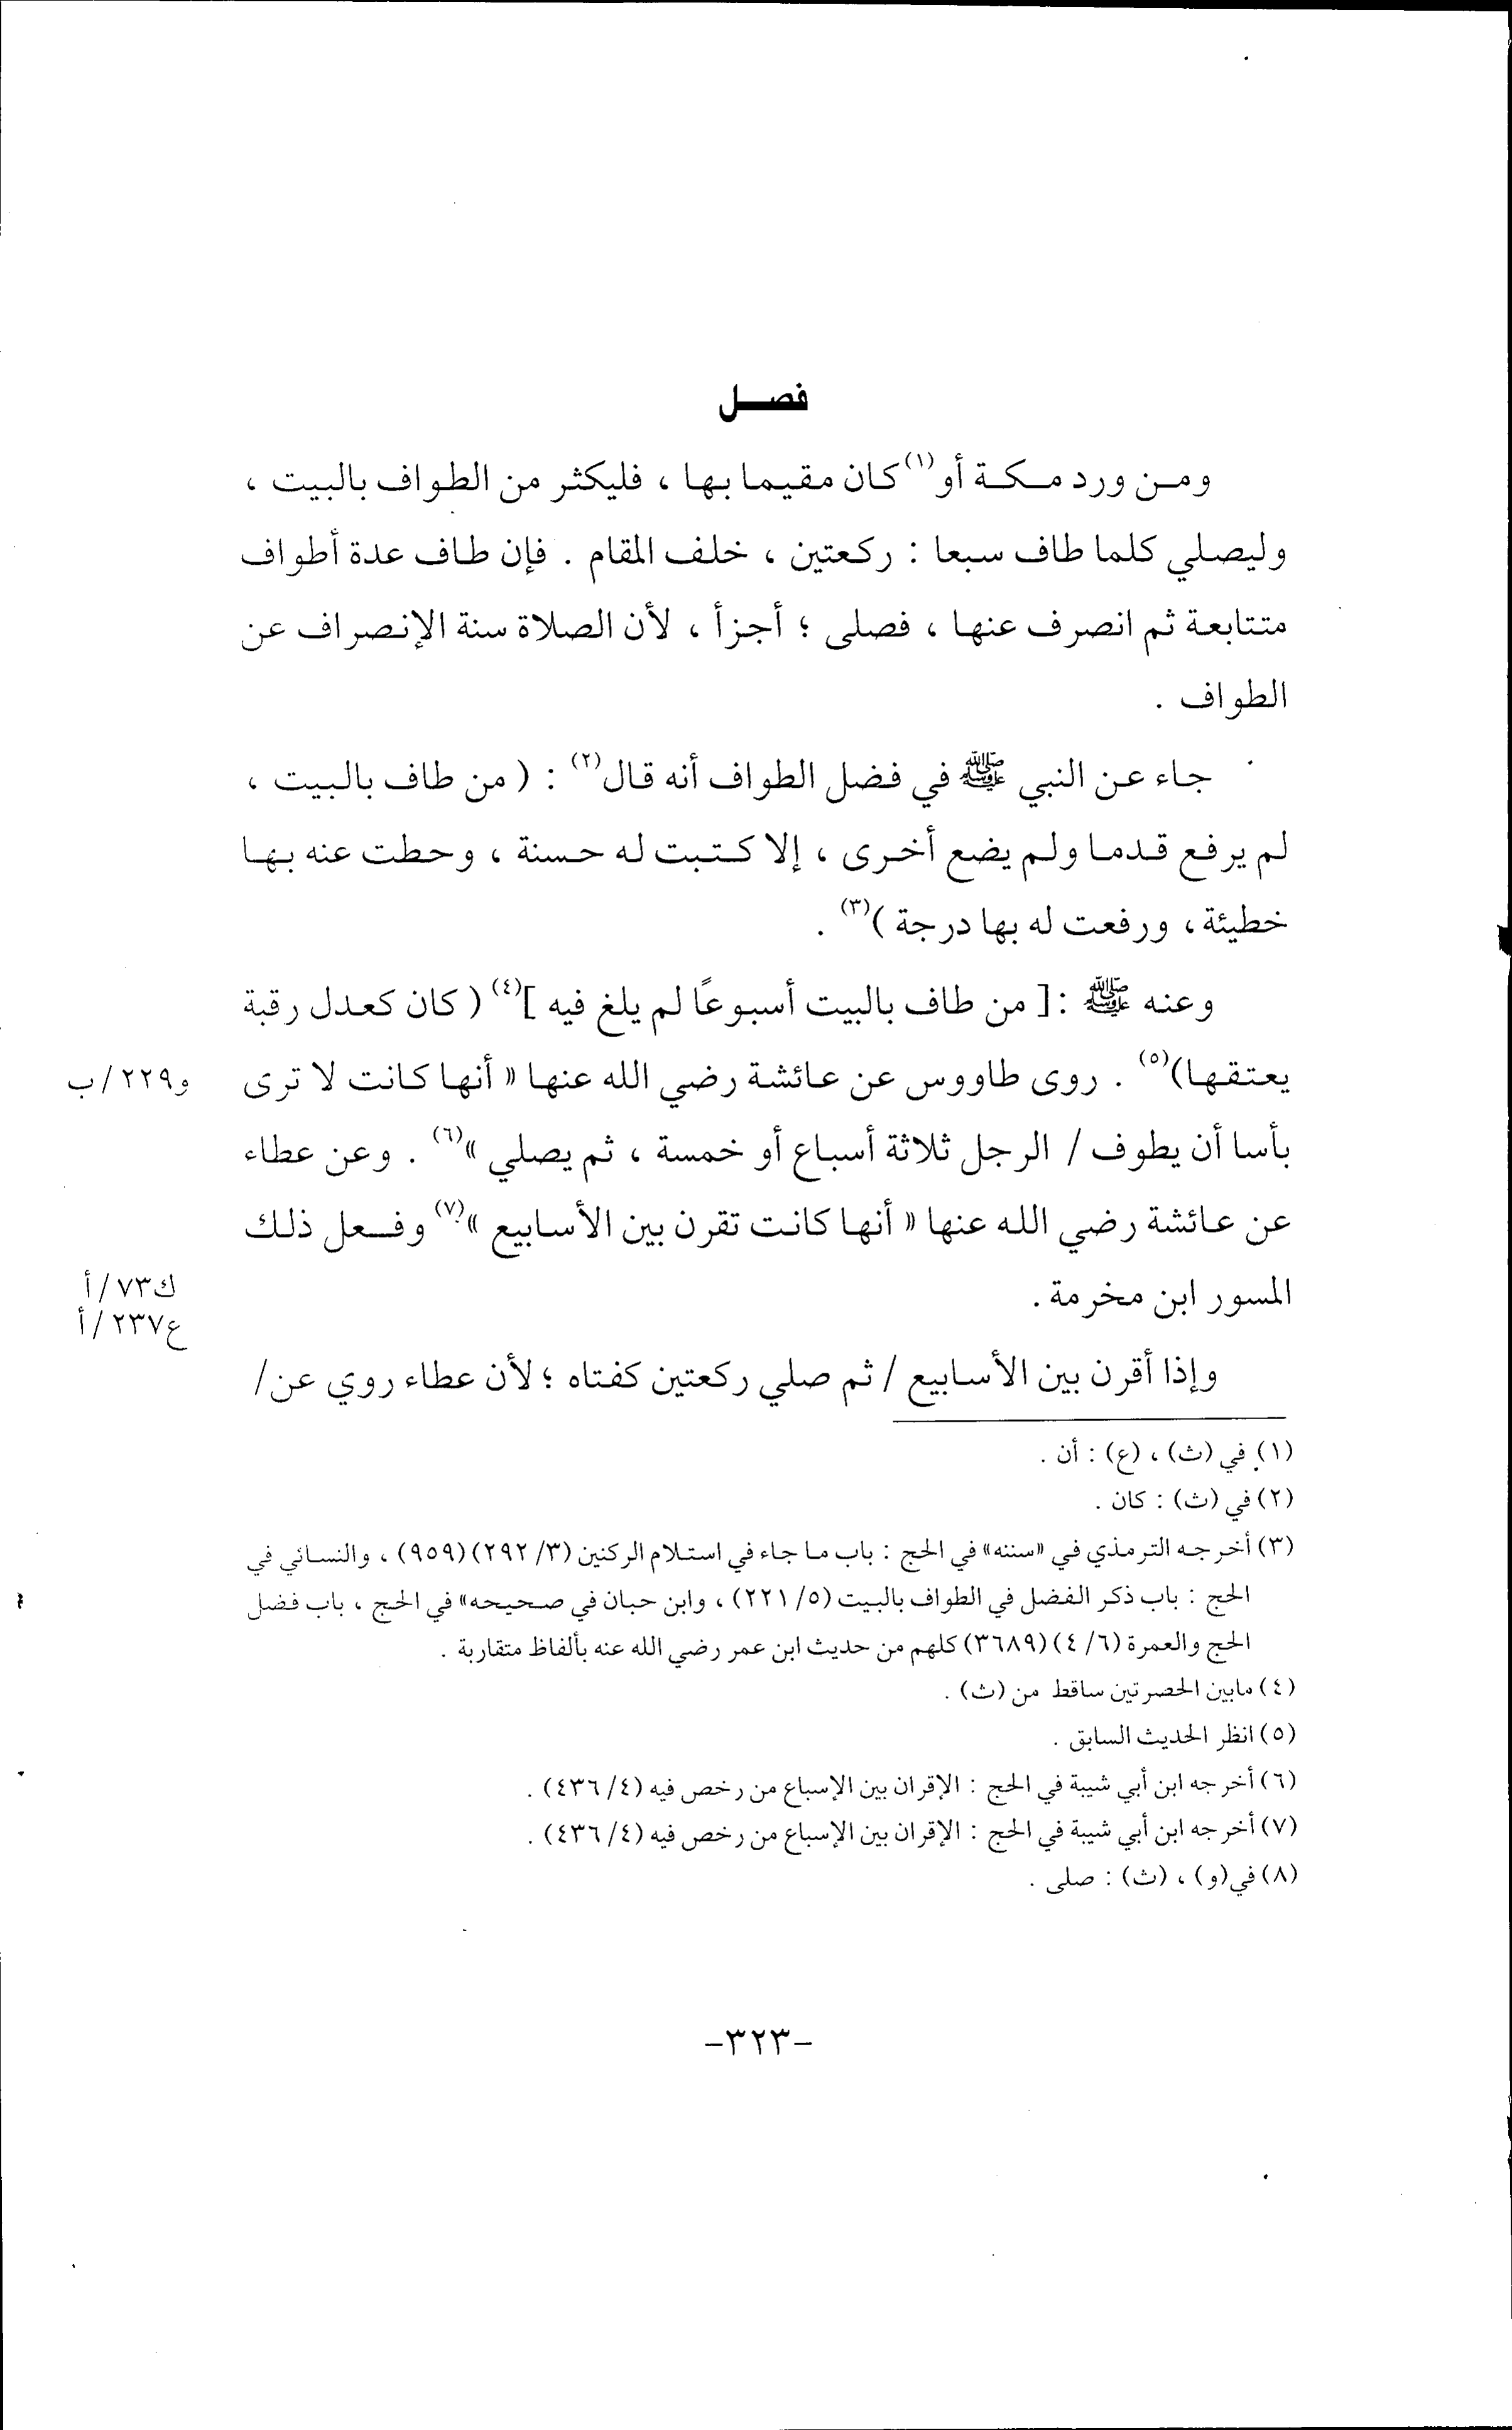 فصل
ومن ورد مكة أو(١) كان مقيما بها ، فليكثر من الطواف بالبيت ،
وليصلي كلما طاف سبعا : ركعتين ، خلف المقام . فإن طاف عدة أطواف
متتابعة ثم انصرف عنها ، فصلى ؛ أجزأ ، لأن الصلاة سنة الإنصراف عن
الطواف .
جاء عن النبي ﷺ في فضل الطواف أنه قال(٢) : ( من طاف بالبيت ،
لم يرفع قدما ولم يضع أخرى ، إلا كتبت له حسنة ، وحطت عنه بها
خطيئة ، ورفعت له بها درجة )(٣) .
وعنه ﷺ : [ من طاف بالبيت أسبوعًا لم يلغ فيه ](٤) ( كان كعدل رقبة
يعتقها)(٥) . روى طاووس عن عائشة رضي الله عنها « أنها كانت لا ترى
و٢٢٩/ب
بأسا أن يطوف / الرجل ثلاثة أسباع أو خمسة ، ثم يصلي »(٦) . وعن عطاء
عن عائشة رضي الله عنها « أنها كانت تقرن بين الأسابيع »(٧) وفعل ذلك
المسور ابن مخرمة .
ك٧٣/أ
ع٢٣٧/أ
وإذا أقرن بين الأسابيع / ثم صلي ركعتين كفتاه ؛ لأن عطاء روي عن/
(١) في (ث) ، (ع) : أن .
(٢) في (ث) : كان .
(٣) أخرجه الترمذي في «سننه» في الحج : باب ما جاء في استلام الركنين (٣/ ٢٩٢) (٩٥٩) ، والنسائي في
الحج : باب ذكر الفضل في الطواف بالبيت (٥/ ٢٢١) ، وابن حبان في صحيحه» في الحج ، باب فضل
الحج والعمرة (٦/ ٤) (٣٦٨٩) كلهم من حديث ابن عمر رضي الله عنه بألفاظ متقاربة .
(٤) مابين الحصرتين ساقط من (ث) .
(٥) انظر الحديث السابق .
(٦) أخرجه ابن أبي شيبة في الحج : الإقران بين الإسباع من رخص فيه (٤/ ٤٣٦) .
(٧) أخرجه ابن أبي شيبة في الحج : الإقران بين الإسباع من رخص فيه (٤/ ٤٣٦) .
(٨) في (و) ، (ث) : صلى .
-٣٢٣-